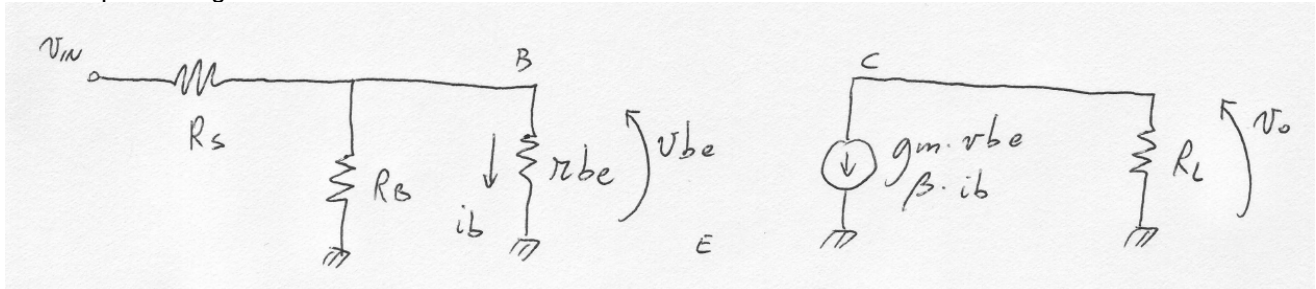 vIN
RS
RB
B
ib
rbe
vbe
E
C
gm. vbe
β. ib
RL
vo